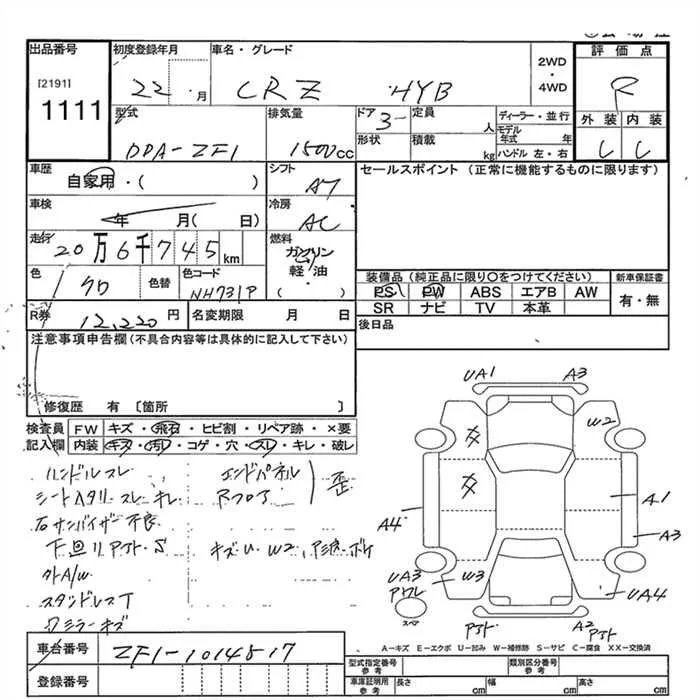 出品番号
[2191]
1111
初度登録年月
22 ・ 月
車名・グレード
CRZ HYB
2WD
・
4WD
評価点
R
外装 内装
C C
型式
DAA-ZF1
排気量
1500cc
ドア
3
形状
定員
人
積載
kg
ディーラー・並行
モデル年式 年
ハンドル 左・右
車歴
自家用・( )
シフト
A7
セールスポイント (正常に機能するものに限ります)
車検
年 月( 日)
冷房
AC
走行
20万6千745km
燃料
ガソリン
軽・油
( )
色
クロ
色替
色コード
NH731P
装備品(純正品に限り○をつけてください)
PS PW ABS エアB AW
SR ナビ TV 本革
新車保証書
有・無
R券
12,220円
名変期限 月 日
後日品
注意事項申告欄(不具合内容等は具体的に記入して下さい)
修復歴 有 〔箇所 〕
検査員
記入欄
FW キズ・飛石・ヒビ割・リペア跡・×要
内装 キズ・汚レ・コゲ・穴・スレ・キレ・破レ
ハンドルスレ
シートヘタリ スレ キレ
右サンバイザー不良
下回リ アト・S
外A/W
スタッドレスT
ワミラーキズ
エンドパネル
Rフロア
歪
キズ・U W2
UA1
A3
W2
A1
A3
A4
UA3
アワレ
W3
UA4
スペア
アト
A2
アト
A-キズ E-エクボ U-凹み W-補修跡 S-サビ C-腐食 XX-交換済
車台番号
ZF1-1014817
登録番号
型式指定番号
参考
類別区分番号
参考
車庫証明用
参考
長さ cm
幅 cm
高さ cm